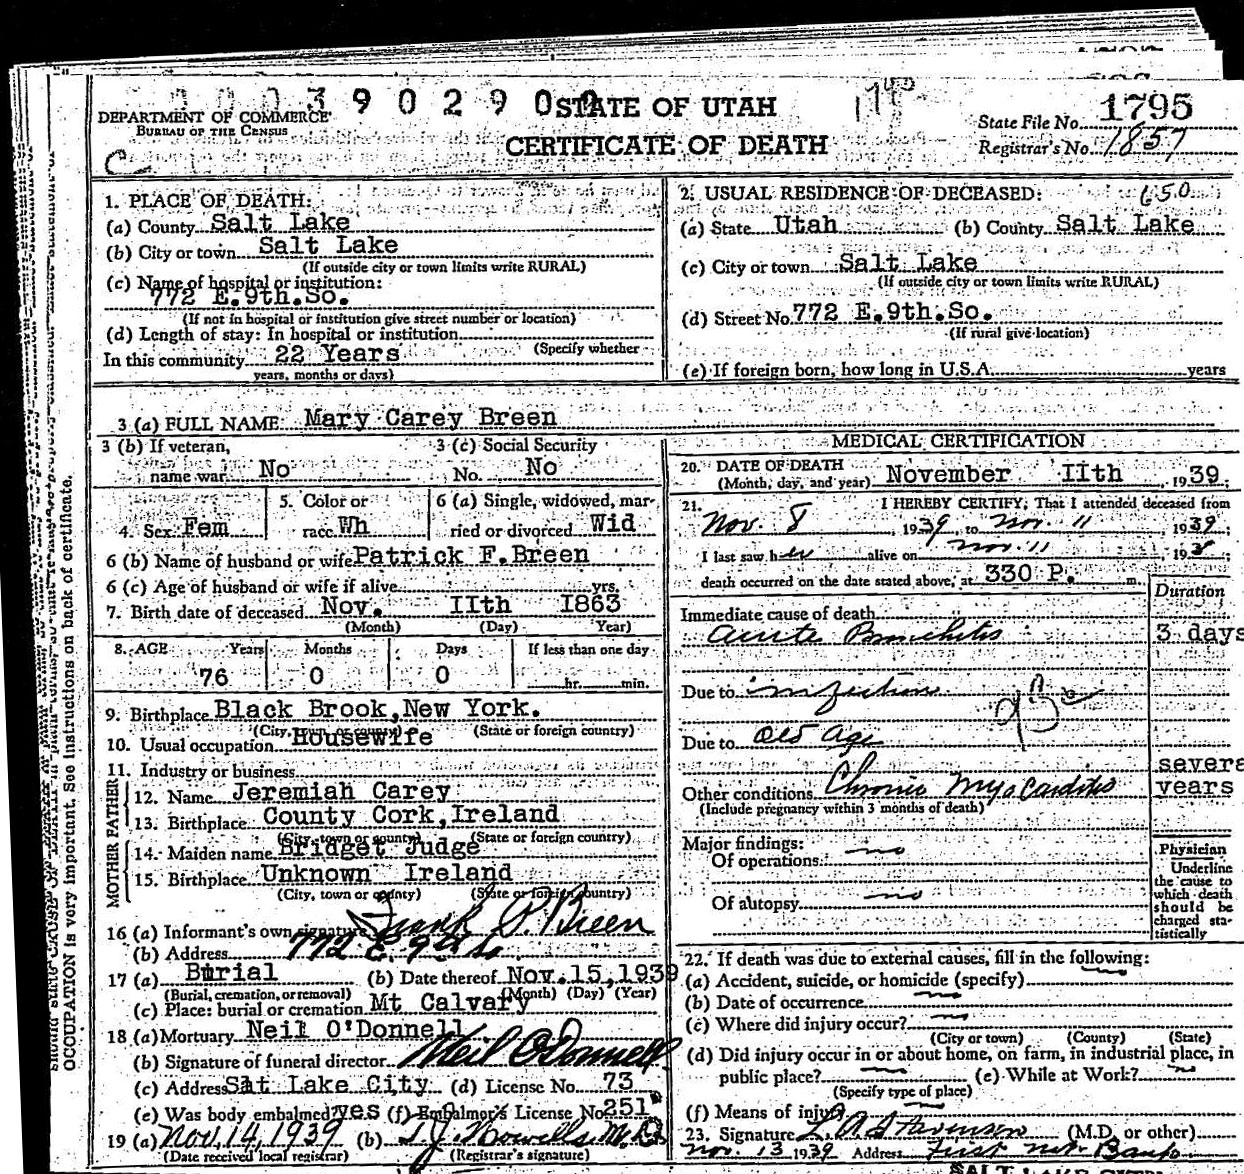 390290
STATE OF UTAH
CERTIFICATE OF DEATH
DEPARTMENT OF COMMERCE
BUREAU OF THE CENSUS
C
State File No. 1795
Registrar's No. 1857
1. PLACE OF DEATH:
(a) County Salt Lake
(b) City or town Salt Lake
(If outside city or town limits write RURAL)
(c) Name of hospital or institution:
772 E.9th.So.
(If not in hospital or institution give street number or location)
(d) Length of stay: In hospital or institution
(Specify whether
In this community 22 Years
years, months or days)
2. USUAL RESIDENCE OF DECEASED: 650
(a) State Utah (b) County Salt Lake
(c) City or town Salt Lake
(If outside city or town limits write RURAL)
(d) Street No. 772 E.9th.So.
(If rural give location)
(e) If foreign born, how long in U.S.A. years
3 (a) FULL NAME Mary Carey Breen
3 (b) If veteran,
name war No
3 (c) Social Security
No. No
4. Sex Fem
5. Color or
race Wh
6 (a) Single, widowed, mar-
ried or divorced Wid
6 (b) Name of husband or wife Patrick F.Breen
6 (c) Age of husband or wife if alive yrs.
7. Birth date of deceased Nov. IIth I863
(Month) (Day) Year)
8. AGE Years Months Days If less than one day
76 0 0 hr. min.
9. Birthplace Black Brook,New York.
(City, town or county) (State or foreign country)
10. Usual occupation Housewife
11. Industry or business
FATHER
12. Name Jeremiah Carey
13. Birthplace County Cork,Ireland
(City, town or county) (State or foreign country)
MOTHER
14. Maiden name Bridget Judge
15. Birthplace Unknown Ireland
(City, town or county) (State or foreign country)
16 (a) Informant's own signature Frank P. Breen
(b) Address 772 E. 9th So
17 (a) Burial (b) Date thereof Nov.15,1939
(Burial, cremation, or removal) (Month) (Day) (Year)
(c) Place: burial or cremation Mt Calvary
18 (a) Mortuary Neil O'Donnell
(b) Signature of funeral director Neil O'Donnell
(c) Address Salt Lake City (d) License No. 73
(e) Was body embalmed? yes (f) Embalmer's License No. 251
19 (a) Nov. 14, 1939 (b) T. J. Howells, M.D.
(Date received local registrar) (Registrar's signature)
MEDICAL CERTIFICATION
20. DATE OF DEATH
(Month, day, and year) November IIth, 1939.
21. I HEREBY CERTIFY, That I attended deceased from
Nov. 8, 1939 to Nov. 11 1939;
I last saw her alive on Nov. 11 193
death occurred on the date stated above, at 330 P. m.
Duration
Immediate cause of death
Acute Bronchitis 3 days
Due to infection
Due to Old Age
several
Other conditions Chronic Myocarditis years
(Include pregnancy within 3 months of death)
Major findings:
Of operations no
Of autopsy no
Physician
Underline
the cause to
which death
should be
charged sta-
tistically
22. If death was due to external causes, fill in the following:
(a) Accident, suicide, or homicide (specify)
(b) Date of occurrence
(c) Where did injury occur?
(City or town) (County) (State)
(d) Did injury occur in or about home, on farm, in industrial place, in
public place? (e) While at Work?
(Specify type of place)
(f) Means of injury
23. Signature L A Stevenson (M.D. or other)
Nov. 13 1939 Address First Nat. Bank
OCCUPATION is very important. See instructions on back of certificate.